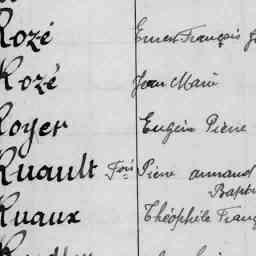 Rozé Emen François
Rozé Jean Marie
Royer Eugène Pierre
Ruault Foi Pierre Armand
Bapt
Ruaux Théophile Franç